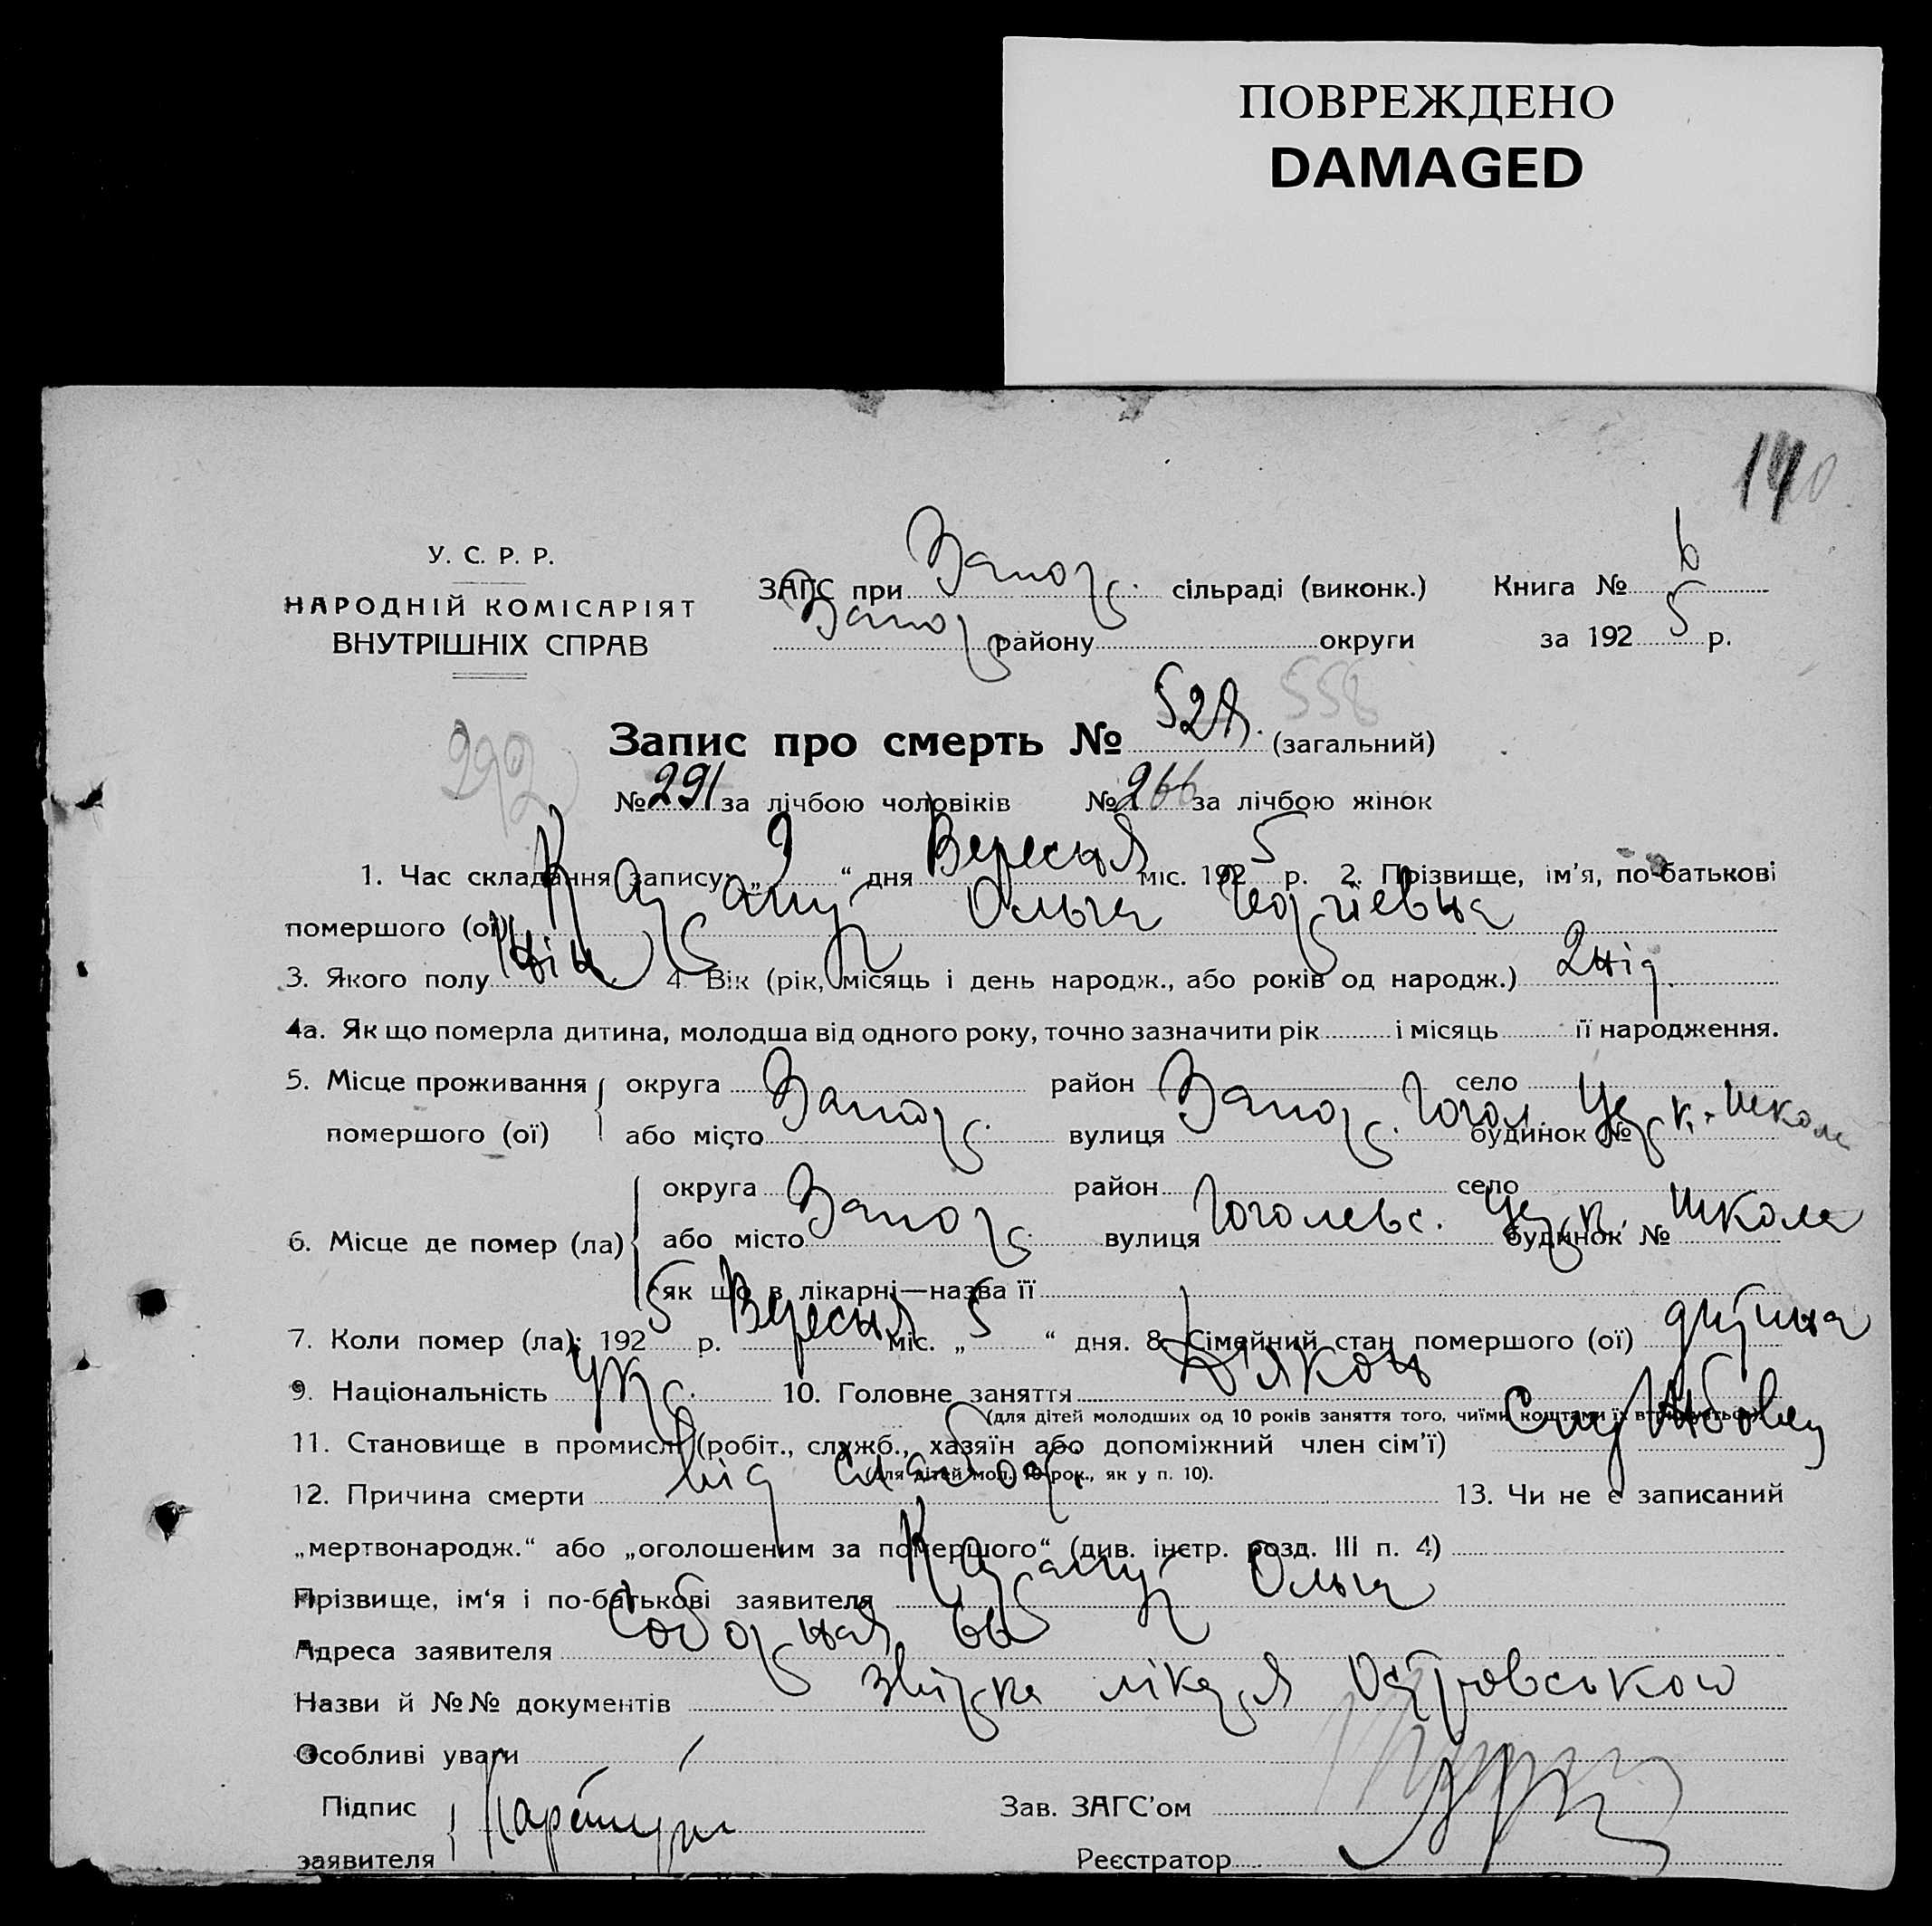 ПОВРЕЖДЕНО
DAMAGED
140
У. С. Р. Р.
НАРОДНІЙ КОМІСАРІЯТ
ВНУТРІШНІХ СПРАВ
ЗАГС при Запор. сільраді (виконк.) Книга № 6
Запор району округи за 1925 р.
558
292
Запис про смерть № 528. (загальний)
№ 291 за лічбою чоловіків № 266 за лічбою жінок
1. Час складання запису: „9“ дня Вересня міс. 1925 р. 2. Прізвище, ім'я, по-батькові
помершого (ої) Ольга Георгіевна
3. Якого полу жін 4. Вік (рік, місяць і день народж., або років од народж.) 2 нід.
4а. Як що померла дитина, молодша від одного року, точно зазначити рік і місяць її народження.
5. Місце проживання округа район село
помершого (ої) або місто Запор. вулиця Запор. Гогол. будинок № Церк. школа
6. Місце де помер (ла) округа район село
або місто Запор. вулиця Гоголевс. будинок № Церк. школа
як що в лікарні—назва її
7. Коли помер (ла): 1925 р. Вересня міс. „5“ дня. 8. Сімейний стан помершого (ої) дитина
9. Національність Укр. 10. Головне заняття Діякон
(для дітей молодших од 10 років заняття того, чиїми коштами їх втримується).
11. Становище в промислі (робіт., служб., хазяїн або допоміжний член сім'ї) Службовец
(для дітей мол. 10 рок., як у п. 10).
12. Причина смерти від слабос. 13. Чи не є записаний
„мертвонародж.“ або „оголошеним за помершого“ (див. інстр. розд. III п. 4)
Прізвище, ім'я і по-батькові заявителя Ольга
Адреса заявителя Соборная 66
Назви й №№ документів звірка лікаря Островського
Особливі уваги
Підпис заявителя
Зав. ЗАГС'ом
Реєстратор